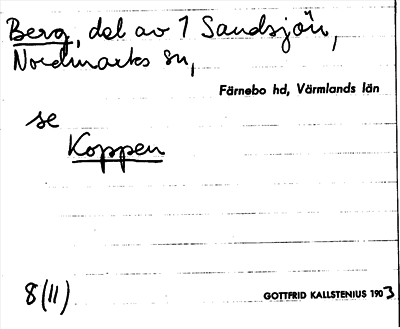 Berg, del av 1 Sandsjön,
Nordmarks sn,
Färnebo hd, Värmlands län
se
Koppen
8(11)
GOTTFRID KALLSTENIUS 1903